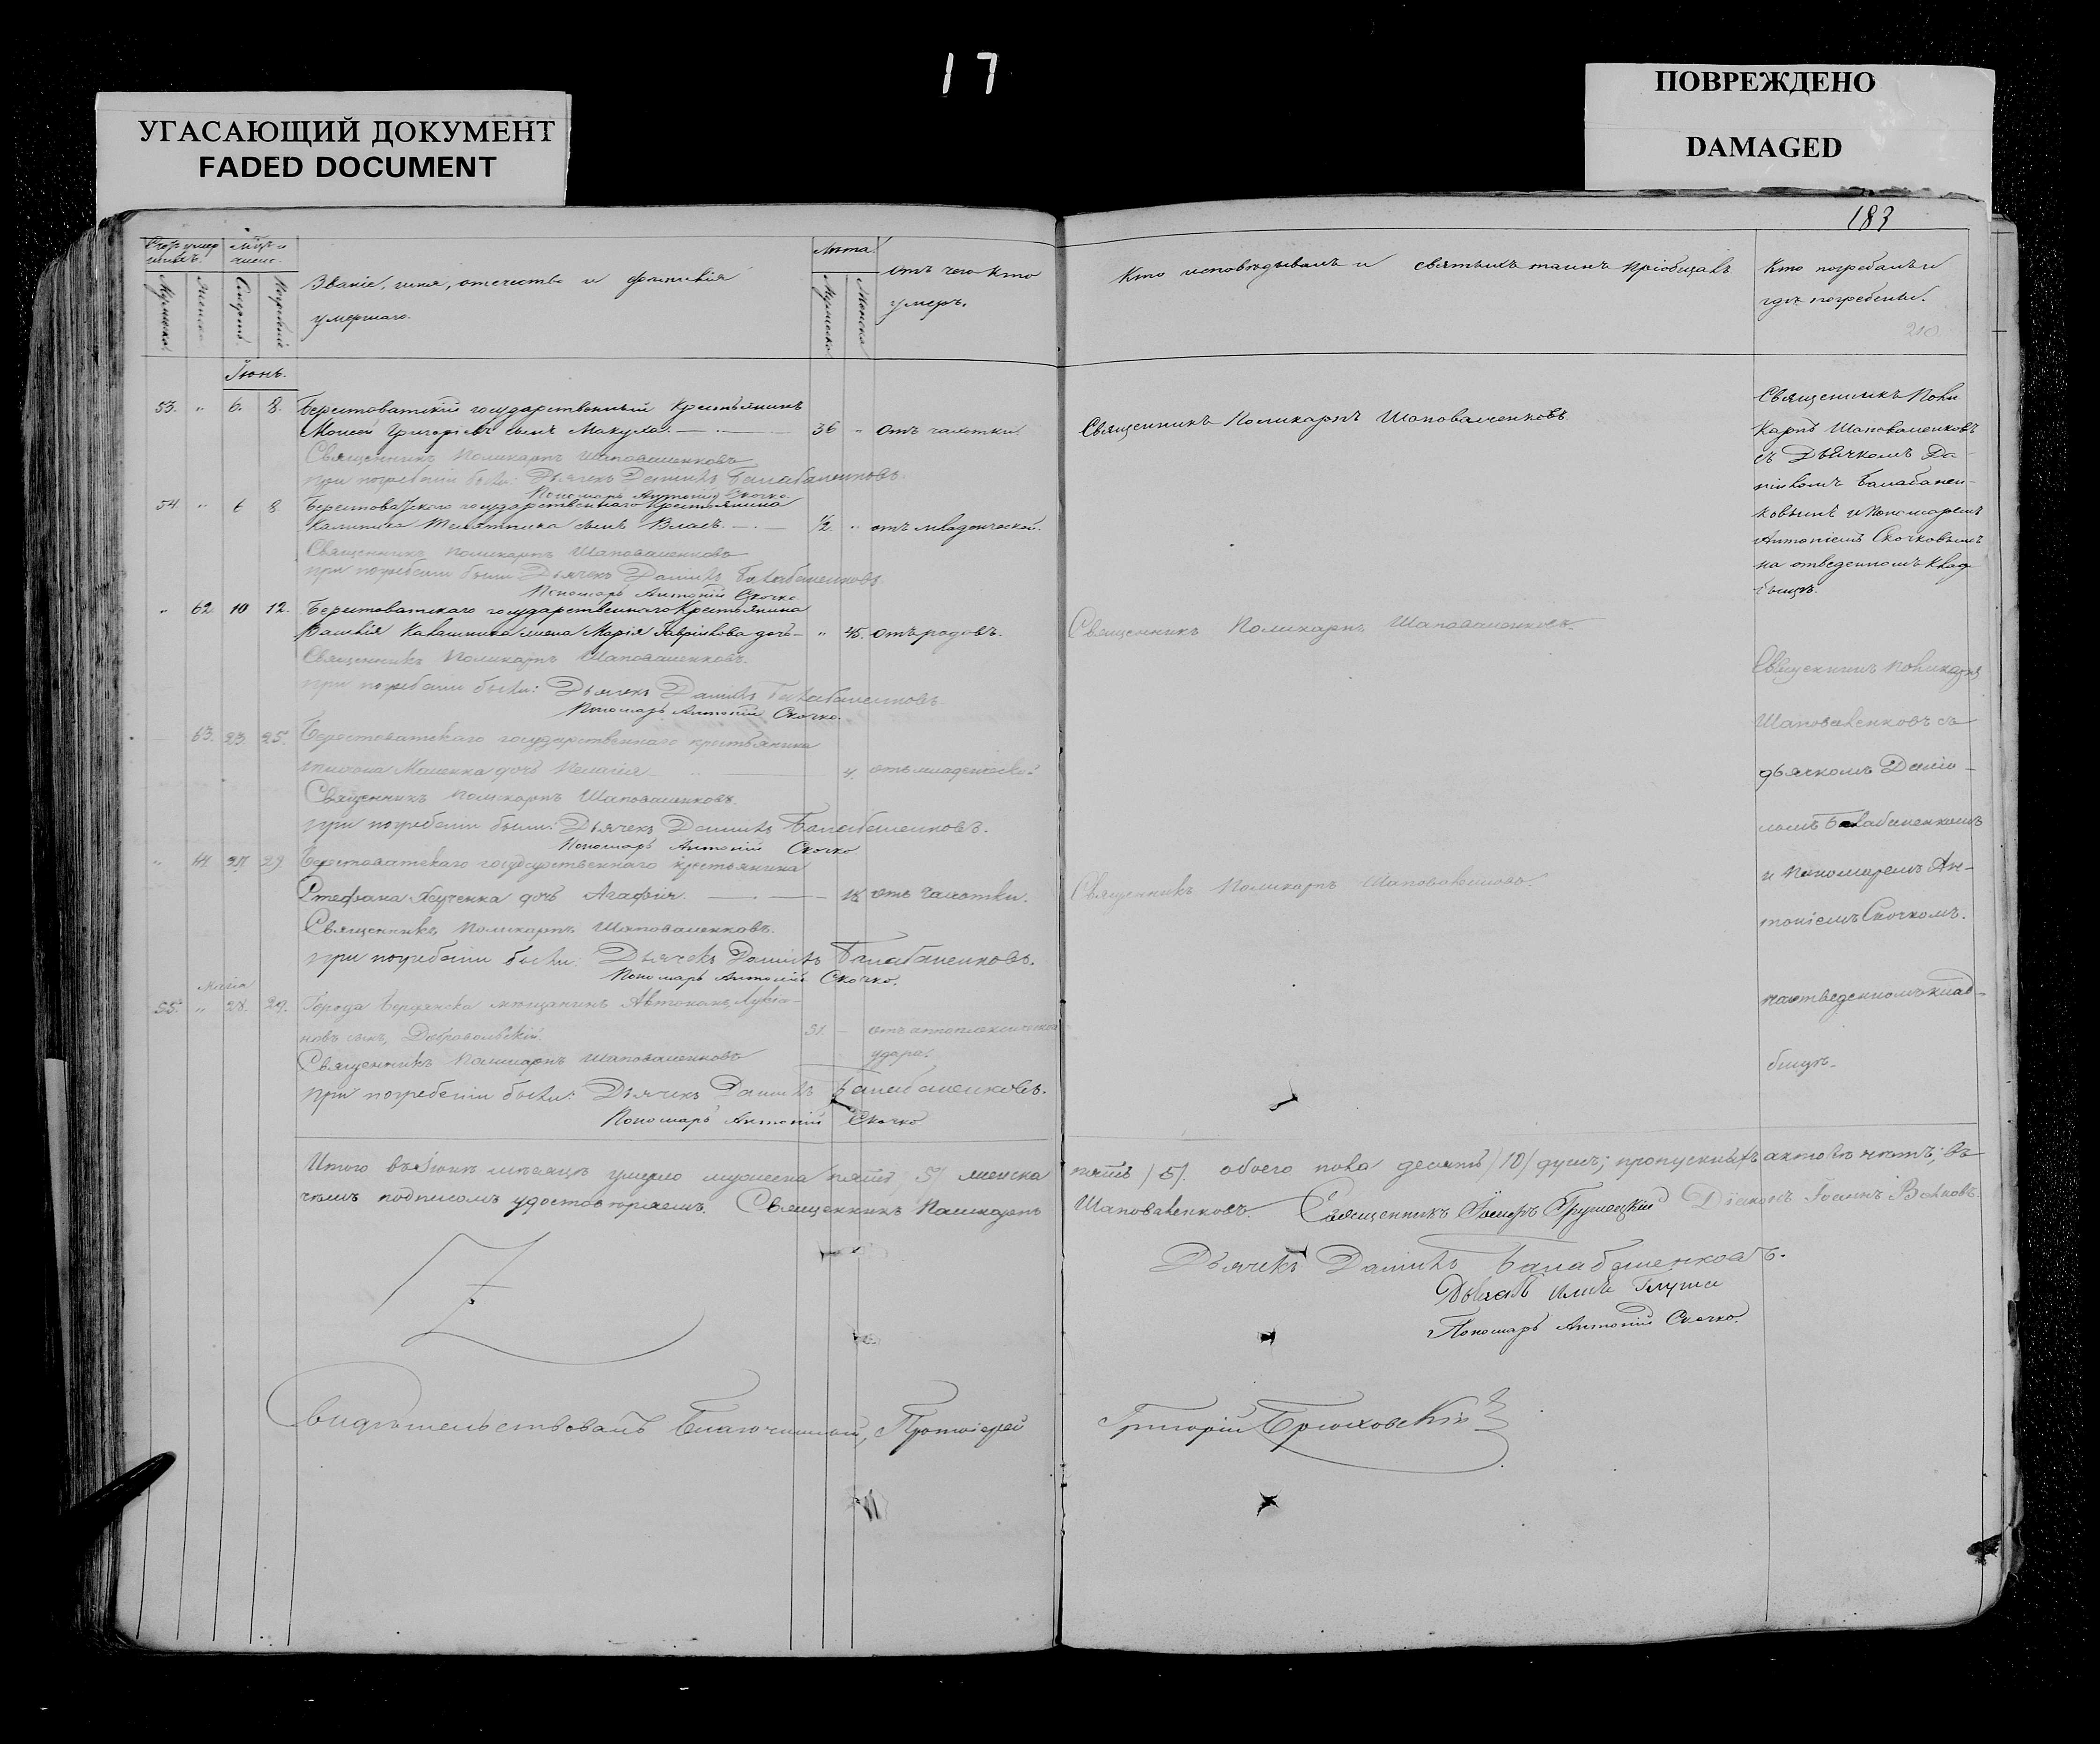 17
УГАСАЮЩИЙ ДОКУМЕНТ
FADED DOCUMENT
ПОВРЕЖДЕНО
DAMAGED
183
Счетъ умер
шихъ.
Мужеска
Женска
Смерти
Погребенія
Званіе, имя, отечество и фамилія
умершаго.
Лѣта
Мужеска
Женска
отъ чего кто
умеръ.
Кто исповѣдывалъ и святыхъ таинъ пріобщалъ
Кто погребалъ и
гдѣ погребены.
210
Іюнь.
53. " 6. 8. Берестоватскій государственный крестьянинъ
Моисей Григоріевъ сынъ Макуха. 36 " отъ чахотки. Священникъ Поликарпъ Шаповаленковъ
Священникъ Поликарпъ Шаповаленковъ
при погребеніи были: Дьячекъ Даніилъ Балабаненковъ.
Пономарь Антоній Скочко.
54 " 6 8 Берестоватского государственнаго крестьянина
сынъ Власъ. 1/2 " отъ младенческой.
Священникъ Поликарпъ Шаповаленковъ
при погребеніи были: Дьячекъ Даніилъ Балабаненковъ
Пономарь Антоній Скочко
" 62 10 12. Берестоватскаго государственнаго крестьянина
жена Марія Гаврілова дочь " 45. отъ родовъ. Священникъ Поликарпъ Шаповаленковъ.
Священникъ Поликарпъ Шаповаленковъ.
при погребеніи были: Дьячекъ Даніилъ Балабаненковъ
Пономарь Антоній Скочко.
63. 23 25. Берестоватскаго государственнаго крестьянина
дочь Пелагія 4. отъ младенческой
Священникъ Поликарпъ Шаповаленковъ.
при погребеніи были: Дьячекъ Даніилъ Балабаненковъ.
Пономарь Антоній Скочко
" 64 27 29 Берестоватскаго государственнаго крестьянина
Стефана дочь Агафія. отъ чахотки. Священникъ Поликарпъ Шаповаленковъ.
Священникъ Поликарпъ Шаповаленковъ.
при погребеніи были: Дьячекъ Даніилъ Балабаненковъ.
Пономарь Антоній Скочко.
55. " 28. 29. Города Бердянска мѣщанинъ
новъ сынъ, Добровольскій. 31. отъ апоплексическаго
удара.
Священникъ Поликарпъ Шаповаленковъ
при погребеніи были: Дьячекъ Даніилъ Балабаненковъ.
Пономарь Антоній Скочко
Священникъ Поли
карпъ Шаповаленковъ
съ Дьячкомъ Да-
ніиломъ Балабанен-
ковымъ и Пономаремъ
Антоніемъ Скочковымъ
на отведенномъ клад
бищѣ.
Священникъ Поликарпъ
Шаповаленковъ съ
дьячкомъ Даніи-
ломъ Балабаненкомъ
и Пономаремъ Ан-
тоніемъ Скочкомъ.
на отведенномъ клад-
бищѣ.
Итого въ Іюнѣ мѣсяцѣ умерло мужеска пять /5/ женска пять /5/. обоего пола десять /10/ душъ; пропускныхъ актовъ нѣтъ; въ
чемъ подписомъ удостовѣряемъ. Священникъ Поликарпъ Шаповаленковъ. Священникъ Діаконъ Іоаннъ Волковъ.
Дьячекъ Даніилъ Балабаненковъ.
Пономарь Антоній Скочко.
Свидѣтельствовалъ Благочинный, Протоіерей Григорій Брюховскій